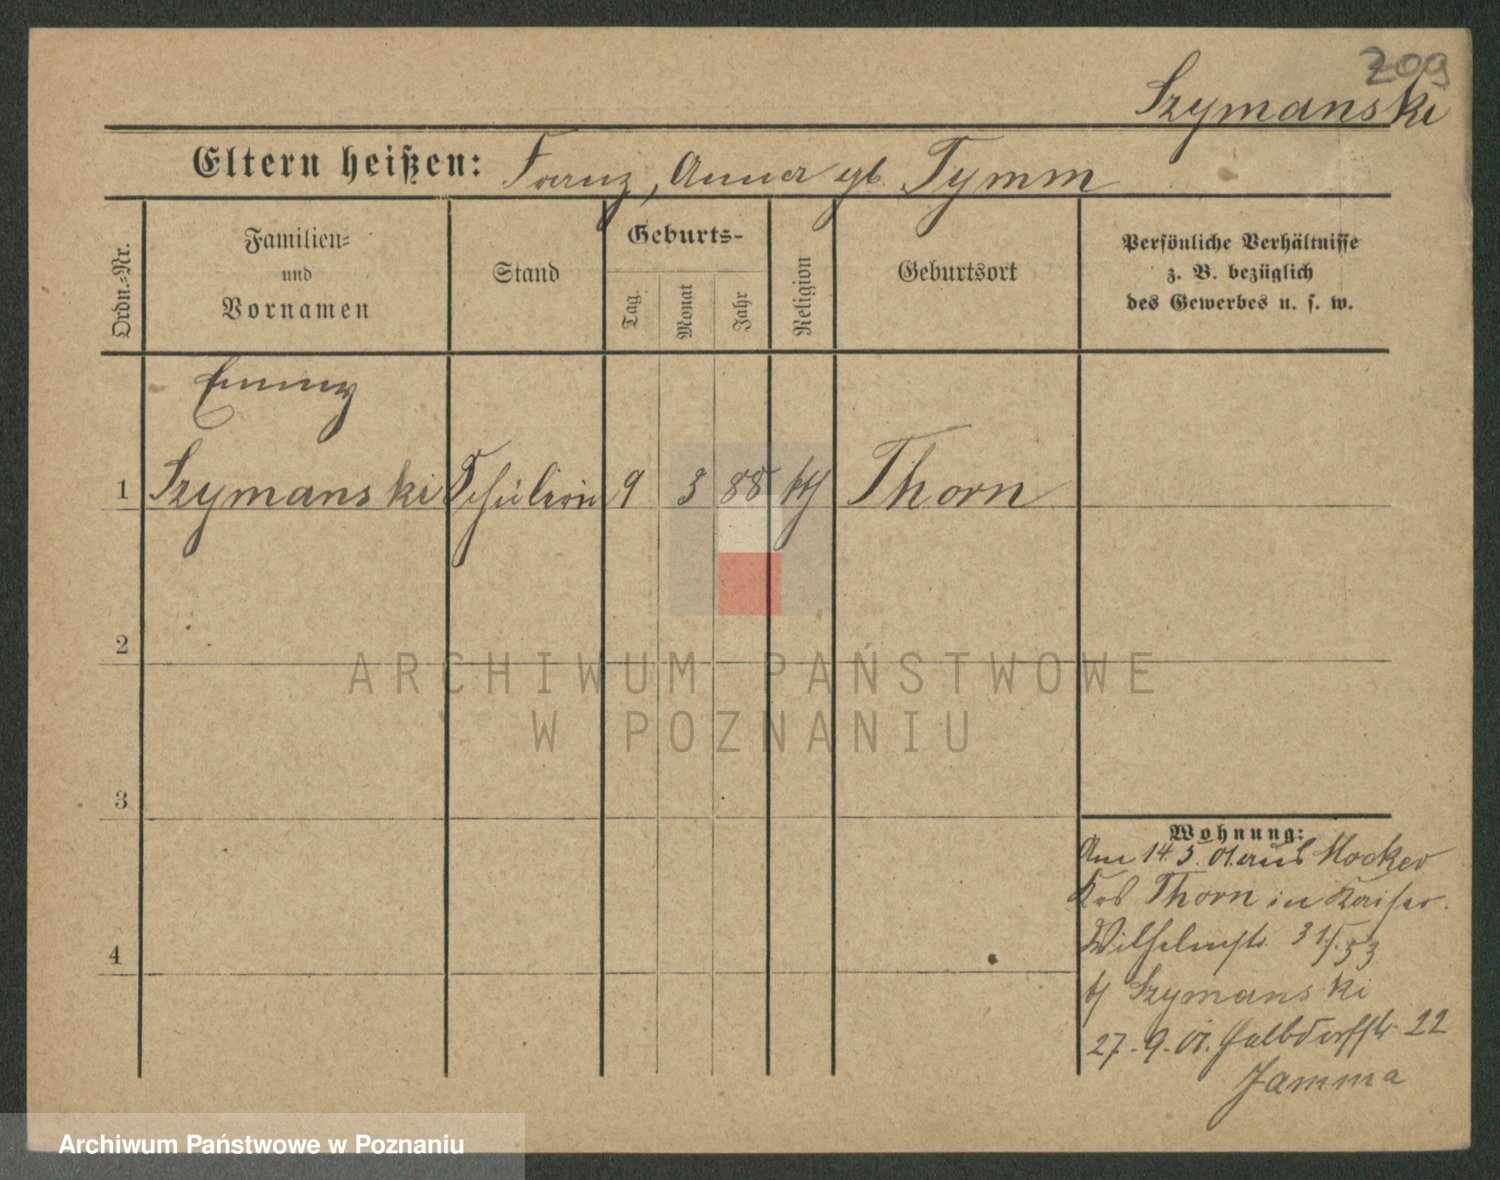 209
Szymanski
Eltern heißen: Franz, Anna gb. Tymm
Ordn.-Nr.
Familien-
und
Vornamen
Stand
Geburts-
Tag.
Monat
Jahr
Religion
Geburtsort
Persönliche Verhältnisse
z. B. bezüglich
des Gewerbes u. s. w.
Emmy
1 Szymanski Schülerin 9 3 88 kth Thorn
2
3
4
Wohnung:
Am 14.3.01 aus Mocker
Krs Thorn in Kaiser-
Wilhelmstr. 31/33
b/ Szymanski
27.9.01. Halbdorfstr. 22
ARCHIWUM PAŃSTWOWE
W POZNANIU
Archiwum Państwowe w Poznaniu